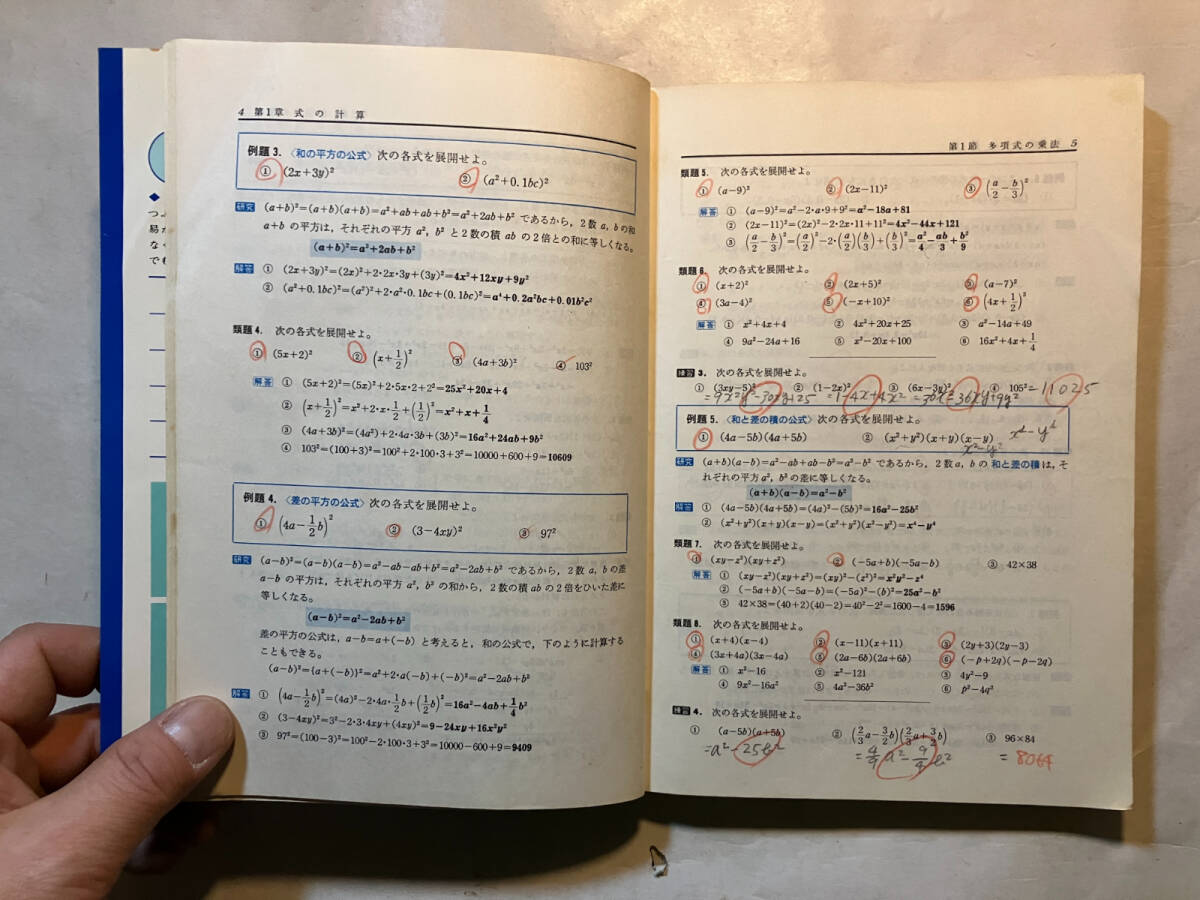 4 第1章 式の計算
例題 3. 〈和の平方の公式〉 次の各式を展開せよ。
① (2x+3y)² ② (a²+0.1bc)²
研究 (a+b)²=(a+b)(a+b)=a²+ab+ab+b²=a²+2ab+b² であるから，2数 a, b の和
a+b の平方は，それぞれの平方 a², b² と2数の積 ab の2倍との和に等しくなる。
(a+b)²=a²+2ab+b²
解答 ① (2x+3y)²=(2x)²+2・2x・3y+(3y)²=4x²+12xy+9y²
② (a²+0.1bc)²=(a²)²+2・a²・0.1bc+(0.1bc)²=a⁴+0.2a²bc+0.01b²c²
類題 4. 次の各式を展開せよ。
① (5x+2)² ② (x+1/2)² ③ (4a+3b)² ④ 103²
解答 ① (5x+2)²=(5x)²+2・5x・2+2²=25x²+20x+4
② (x+1/2)²=x²+2・x・1/2+(1/2)²=x²+x+1/4
③ (4a+3b)²=(4a²)+2・4a・3b+(3b)²=16a²+24ab+9b²
④ 103²=(100+3)²=100²+2・100・3+3²=10000+600+9=10609
例題 4. 〈差の平方の公式〉 次の各式を展開せよ。
① (4a−1/2b)² ② (3−4xy)² ③ 97²
研究 (a−b)²=(a−b)(a−b)=a²−ab−ab+b²=a²−2ab+b² であるから，2数 a, b の差
a−b の平方は，それぞれの平方 a², b² の和から，2数の積 ab の2倍をひいた差に
等しくなる。
(a−b)²=a²−2ab+b²
差の平方の公式は，a−b=a+(−b) と考えると，和の公式で，下のように計算する
こともできる。
(a−b)²={a+(−b)}²=a²+2・a(−b)+(−b)²=a²−2ab+b²
解答 ① (4a−1/2b)²=(4a)²−2・4a・1/2b+(1/2b)²=16a²−4ab+1/4b²
② (3−4xy)²=3²−2・3・4xy+(4xy)²=9−24xy+16x²y²
③ 97²=(100−3)²=100²−2・100・3+3²=10000−600+9=9409
第1節 多項式の乗法 5
類題 5. 次の各式を展開せよ。
① (a−9)² ② (2x−11)² ③ (a/2−b/3)²
解答 ① (a−9)²=a²−2・a・9+9²=a²−18a+81
② (2x−11)²=(2x)²−2・2x・11+11²=4x²−44x+121
③ (a/2−b/3)²=(a/2)²−2・(a/2)(b/3)+(b/3)²=a²/4−ab/3+b²/9
類題 6. 次の各式を展開せよ。
① (x+2)² ② (2x+5)² ③ (a−7)²
④ (3a−4)² ⑤ (−x+10)² ⑥ (4x+1/2)²
解答 ① x²+4x+4 ② 4x²+20x+25 ③ a²−14a+49
④ 9a²−24a+16 ⑤ x²−20x+100 ⑥ 16x²+4x+1/4
練習 3. 次の各式を展開せよ。
① (3xy−5)² ② (1−2x)² ③ (6x−3y)² ④ 105² =11025
=9x²y²−30xy+25 =1−4x+4x² =36x²−36xy+9y²
例題 5. 〈和と差の積の公式〉 次の各式を展開せよ。
① (4a−5b)(4a+5b) ② (x²+y²)(x+y)(x−y) x⁴−y⁴
x²−y²
研究 (a+b)(a−b)=a²−ab+ab−b²=a²−b² であるから，2数 a, b の 和と差の積は，そ
れぞれの平方 a², b² の差に等しくなる。
(a+b)(a−b)=a²−b²
解答 ① (4a−5b)(4a+5b)=(4a)²−(5b)²=16a²−25b²
② (x²+y²)(x+y)(x−y)=(x²+y²)(x²−y²)=x⁴−y⁴
類題 7. 次の各式を展開せよ。
① (xy−z²)(xy+z²) ② (−5a+b)(−5a−b) ③ 42×38
解答 ① (xy−z²)(xy+z²)=(xy)²−(z²)²=x²y²−z⁴
② (−5a+b)(−5a−b)=(−5a)²−(b)²=25a²−b²
③ 42×38=(40+2)(40−2)=40²−2²=1600−4=1596
類題 8. 次の各式を展開せよ。
① (x+4)(x−4) ② (x−11)(x+11) ③ (2y+3)(2y−3)
④ (3x+4a)(3x−4a) ⑤ (2a−6b)(2a+6b) ⑥ (−p+2q)(−p−2q)
解答 ① x²−16 ② x²−121 ③ 4y²−9
④ 9x²−16a² ⑤ 4a²−36b² ⑥ p²−4q²
練習 4. 次の各式を展開せよ。
① (a−5b)(a+5b) ② (2/3a−3/2b)(2/3a+3/2b) ③ 96×84
=a²−25b² =4/9a²−9/4b² =8064